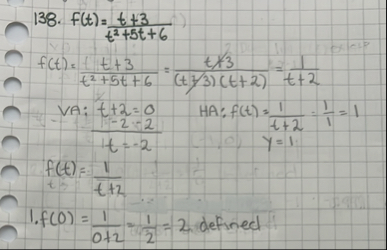 138. f(t) = t+3 / t²+5t+6
f(t) = t+3 / t²+5t+6 = t+3 / (t+3)(t+2) = 1 / t+2
VA: t+2=0 HA: f(t) = 1 / t+2 = 1/1 = 1
-2 -2 y=1
t=-2
f(t) = 1 / t+2
1. f(0) = 1 / 0+2 = 1/2 = 2, defined